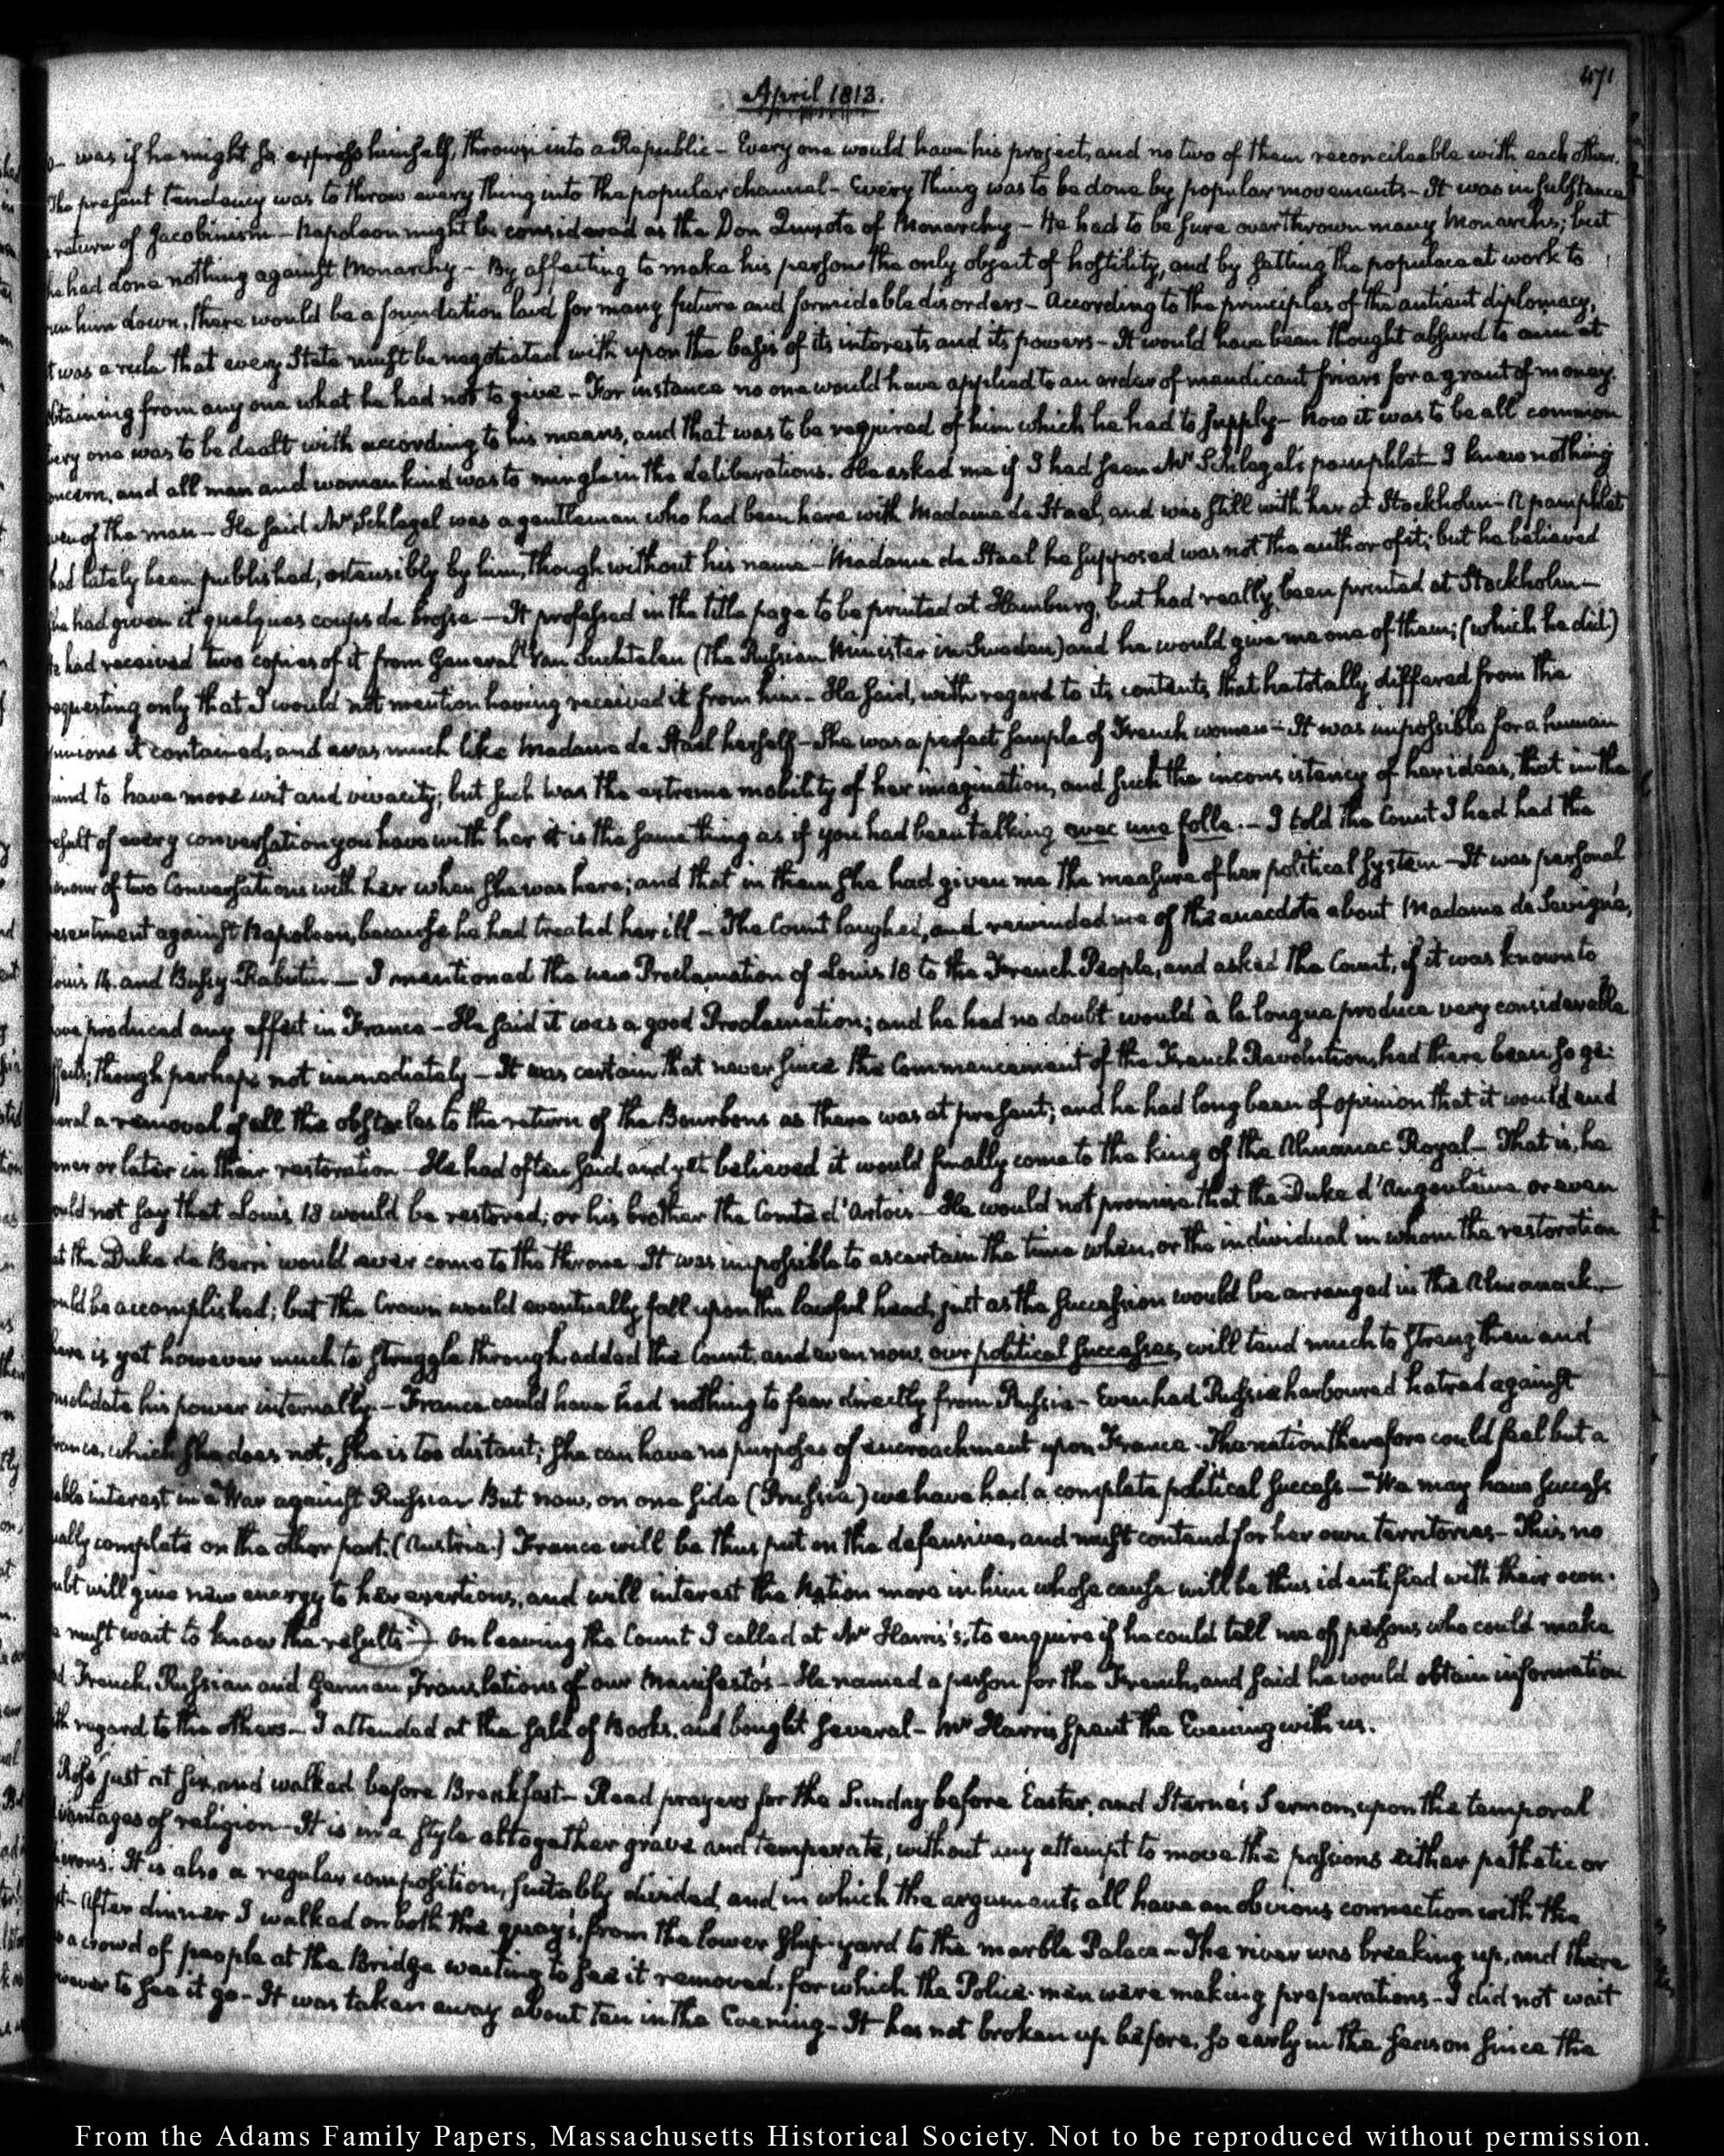 471
April 1813.
was if he might so express himself, thrown into a Republic – Every one would have his project, and no two of them reconcileable with each other.
The present tendency was to throw every thing into the popular channel – Every thing was to be done by popular movements – It was in substance
return of Jacobinism – Napoleon might be considered as the Don Quixote of Monarchy – He had to be sure overthrown many Monarchs; but
he had done nothing against Monarchy – By affecting to make his person the only object of hostility, and by setting the populace at work to
run him down, there would be a foundation laid for many future and formidable disorders – According to the principles of the antient diplomacy,
it was a rule that every State must be negotiated with upon the basis of its interests and its powers – It would have been thought absurd to aim at
obtaining from any one what he had not to give – For instance no one would have applied to an order of mendicant friars for a grant of money.
every one was to be dealt with according to his means, and that was to be required of him which he had to supply – Now it was to be all common
concern, and all man and woman kind was to mingle in the deliberations. He asked me if I had seen Mr Schlegel's pamphlet – I knew nothing
even of the man – He said Mr Schlegel was a gentleman who had been here with Madame de Stael, and was still with her at Stockholm – A pamphlet
had lately been published, ostensibly by him, though without his name – Madame de Stael he supposed was not the author of it; but he believed
she had given it quelques coups de brosse – It professed in the title page to be printed at Hamburg, but had really been printed at Stockholm –
he had received two copies of it from General Van Suchtelen (the Russian Minister in Sweden) and he would give me one of them; (which he did)
requesting only that I would not mention having received it from him – He said, with regard to its contents, that he totally differed from the
opinions it contained, and was much like Madame de Stael herself – She was a perfect sample of French women – It was impossible for a human
mind to have more wit and vivacity; but such was the extreme mobility of her imagination, and such the inconsistency of her ideas, that in the
result of every conversation you have with her it is the same thing as if you had been talking avec une folle. – I told the Count I had had the
honour of two Conversations with her when she was here; and that in them she had given me the measure of her political system – It was personal
resentment against Napoleon, because he had treated her ill – The Count laughed, and reminded me of the anecdote about Madame de Sevigné,
Louis 14. and Bussy-Rabutin – I mentioned the new Proclamation of Louis 18 to the French People, and asked the Count, if it was known to
have produced any effect in France – He said it was a good Proclamation; and he had no doubt would à la longue produce very considerable
effects; though perhaps not immediately – It was certain that never since the Commencement of the French Revolution, had there been so ge:
neral a removal of all the obstacles to the return of the Bourbons as there was at present; and he had long been of opinion that it would end
sooner or later in their restoration – He had often said, and yet believed it would finally come to the king of the Almanac Royal – That is, he
would not say that Louis 18 would be restored; or his brother the Comte d'Artois – He would not promise that the Duke d'Angouleme or even
that the Duke de Berri would ever come to the throne – It was impossible to ascertain the time when, or the individual in whom the restoration
would be accomplished; but the Crown would eventually fall upon the lawful head, just as the succession would be arranged in the Almanack. –
There is yet however much to struggle through, added the Count, and even now, our political successes, will tend much to strengthen and
consolidate his power internally – France could have had nothing to fear directly from Russia – Even had Russia harboured hatred against
France, which she does not, she is too distant; she can have no purposes of encroachment upon France. The nation therefore could feel but a
interest in a War against Russia – But now, on one side (Prussia) we have had a complete political success – We may have success
equally complete on the other part. (Austria.) France will be thus put on the defensive, and must contend for her own territories – This, no
doubt will give new energy to her exertions, and will interest the Nation more in him whose cause will be thus identified with their own.
We must wait to know the results – On leaving the Count I called at Mr Harris's, to enquire if he could tell me of persons who could make
French, Russian and German Translations of our Manifesto's – He named a person for the French, and said he would obtain information
with regard to the others – I attended at the sale of Books, and bought several – Mr Harris spent the Evening with us.
Rose just at six, and walked before Breakfast – Read prayers for the Sunday before Easter, and Sterne's Sermon, upon the temporal
advantages of religion – It is in a style altogether grave and temperate, without any attempt to move the passions either pathetic or
It is also a regular composition, suitably divided, and in which the arguments all have an obvious connection with the
After dinner I walked on both the quay's, from the lower ship-yard to the marble Palace – The river was breaking up, and there
was a crowd of people at the Bridge waiting to see it removed, for which the Police-men were making preparations – I did not wait
however to see it go – It was taken away about ten in the Evening – It has not broken up before, so early in the season since the
From the Adams Family Papers, Massachusetts Historical Society. Not to be reproduced without permission.